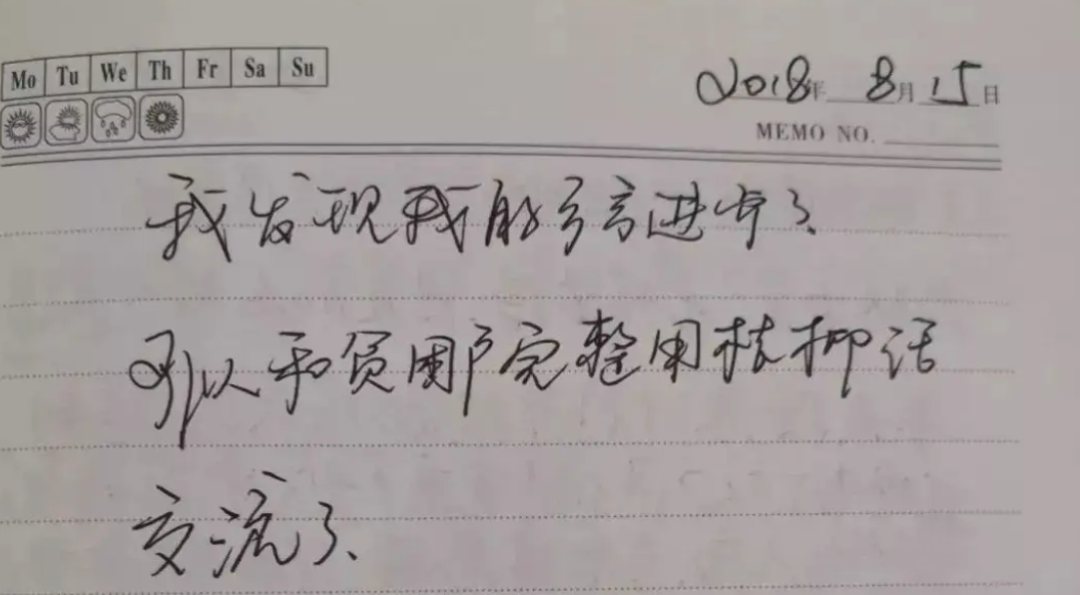 Mo Tu We Th Fr Sa Su
2018年 8月 15日
MEMO NO.
我发现我的方言进步了、
可以和贫困户完整用桂柳话
交流了、